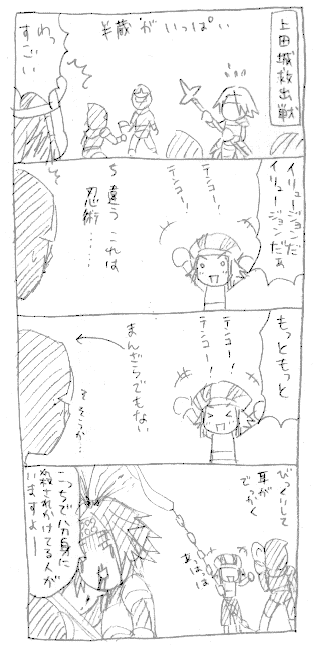 上田城救出戦
半蔵がいっぱい
わっ
すごい
イリュージョンだ
イリュージョンだぁ
テンコー!
テンコー!
ち違う これは
忍術……
もっともっと
テンコー!
テンコー!
まんざらでもない
そ そうか…
びっくりして
耳が
でっかく
あはは
こっちで八つ身に
殺されかけてる人が
いますよー